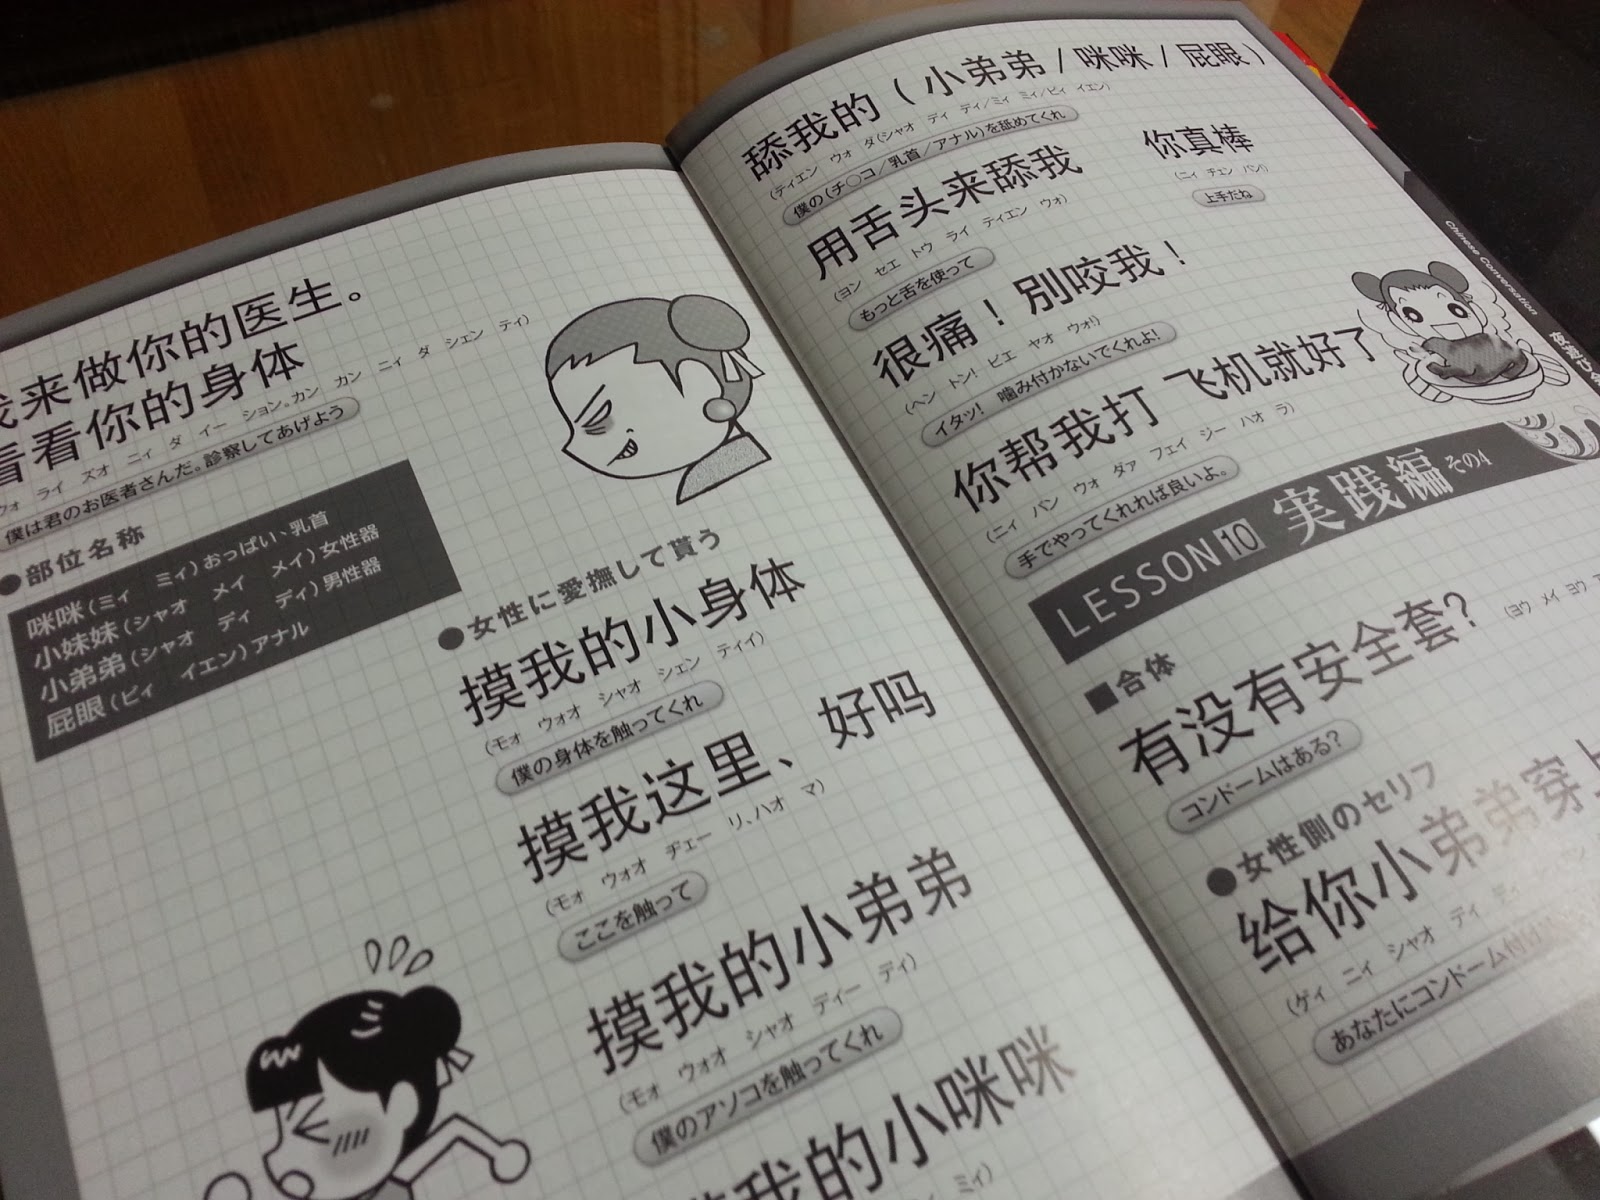 来做你的医生。
看看你的身体
ライ ズオ ニィ ダ イー ション。カン カン ニィ ダ シェン ティ)
僕は君のお医者さんだ。診察してあげよう
●部位名称
咪咪(ミィ ミィ)おっぱい、乳首
小妹妹(シャオ メイ メイ)女性器
小弟弟(シャオ ディ ディ)男性器
屁眼(ピィ イエン)アナル
●女性に愛撫して貰う
摸我的小身体
(モォ ウォオ シャオ シェン ティイ)
僕の身体を触ってくれ
摸我这里、好吗
(モォ ウォオ ヂェー リ、ハオ マ)
ここを触って
摸我的小弟弟
(モォ ウォオ シャオ ディー ディ)
僕のアソコを触ってくれ
我的小咪咪
ミィ)
舔我的(小弟弟/咪咪/屁眼)
(ティエン ウォ ダ(シャオ ディ ディ/ミィ ミィ/ピィ イエン)
僕の(チ○コ/乳首/アナル)を舐めてくれ
用舌头来舔我
(ヨン セエ トウ ライ ティエン ウォ)
もっと舌を使って
你真棒
(ニィ チェン バン!)
上手だね
很痛！別咬我！
(ヘン トン! ビエ ヤオ ウォ!)
イタッ! 噛み付かないでくれよ!
你帮我打 飞机就好了
(ニィ バン ウォ ダァ フェイ ジー ハオ ラ)
手でやってくれれば良いよ。
Chinese Conversation
LESSON10 実践編 その4
■合体
有没有安全套?
(ヨウ メイ ヨウ
コンドームはある?
●女性側のセリフ
给你小弟弟穿上
(ゲィ ニィ シャオ ディ ディ
あなたにコンドーム付け